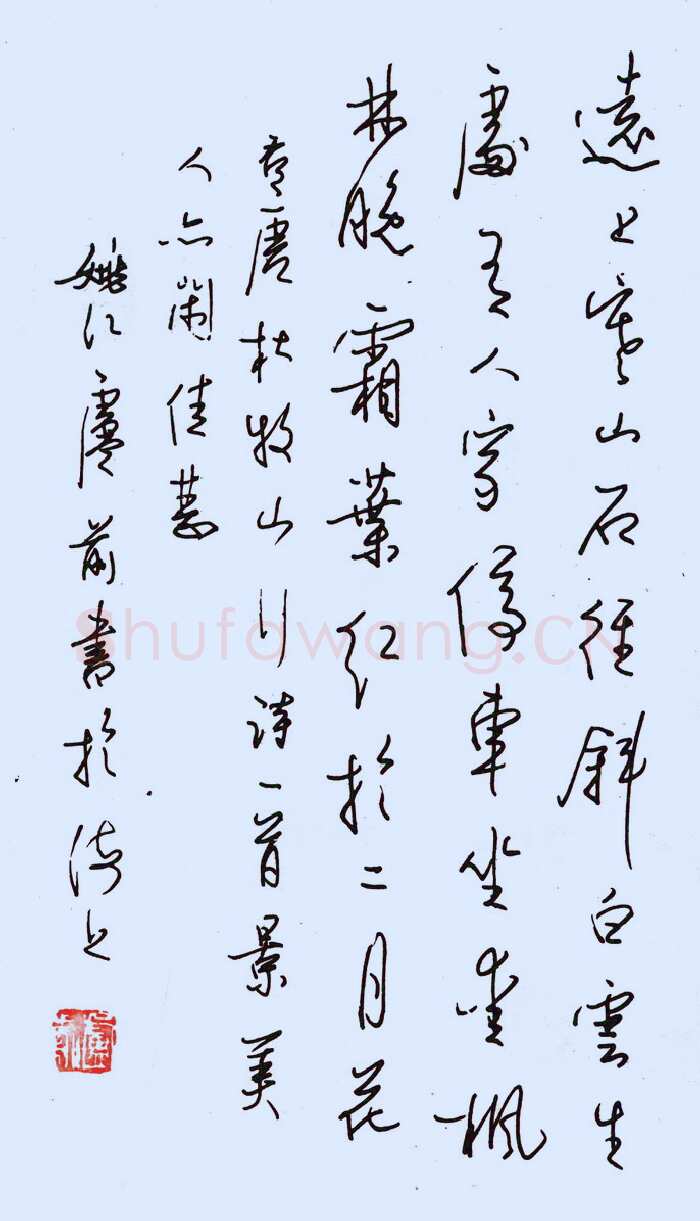 遠上寒山石徑斜白雲生
處有人家停車坐愛楓
林晚霜葉紅於二月花
唐杜牧山行詩一首景美
人亦佳
姚江盧前書於滬上
Shufawang.CN